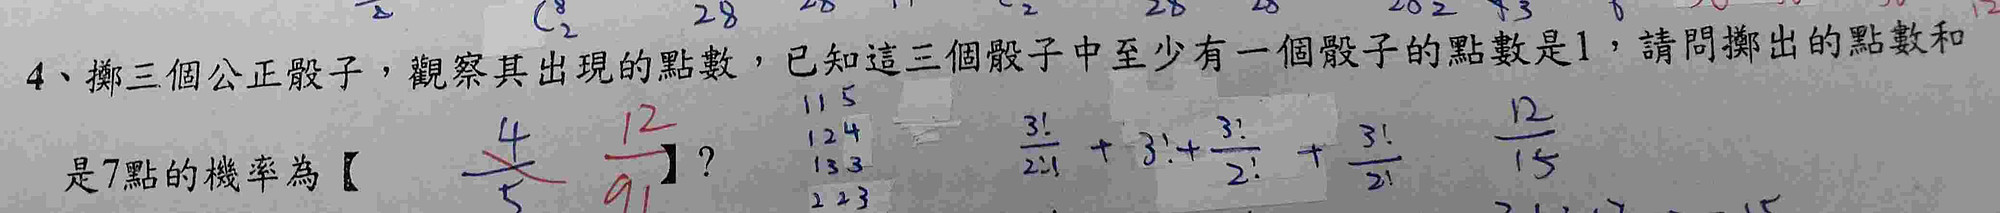 C⁸₂ 28
4、擲三個公正骰子，觀察其出現的點數，已知這三個骰子中至少有一個骰子的點數是1，請問擲出的點數和
是7點的機率為【 4/5 12/91 】？
115
124
133
223
3!/2!1! + 3! + 3!/2! + 3!/2!
12/15